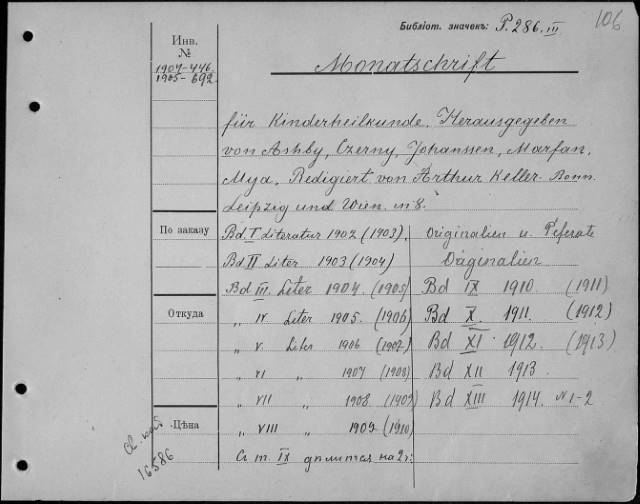 Библіот. значекъ: P. 286. III
106
Инв. №
1907-446
1905-692
Monatschrift
für Kinderheilkunde. Herausgegeben
von Ashby, Czerny, Johanssen, Marfan,
Mya. Redigiert von Arthur Keller. Bonn
Leipzig und Wien. in 8.°
По заказу
Bd I Literatur 1902 (1903).
Bd II Liter 1903 (1904)
Bd III. Liter 1904. (1905)
Откуда
„ IV Liter 1905. (1906)
„ V. Liter 1906 (1907)
„ VI „ 1907 (1908)
„ VII „ 1908 (1909)
Цѣна
„ VIII „ 1909 (1910)
Съ т. IX дѣлится на 2 г:
Originalien u. Referate
Originalien
Bd IX 1910. (1911)
Bd X. 1911. (1912)
Bd XI 1912. (1913)
Bd XII 1913.
Bd XIII 1914. N 1-2
16586